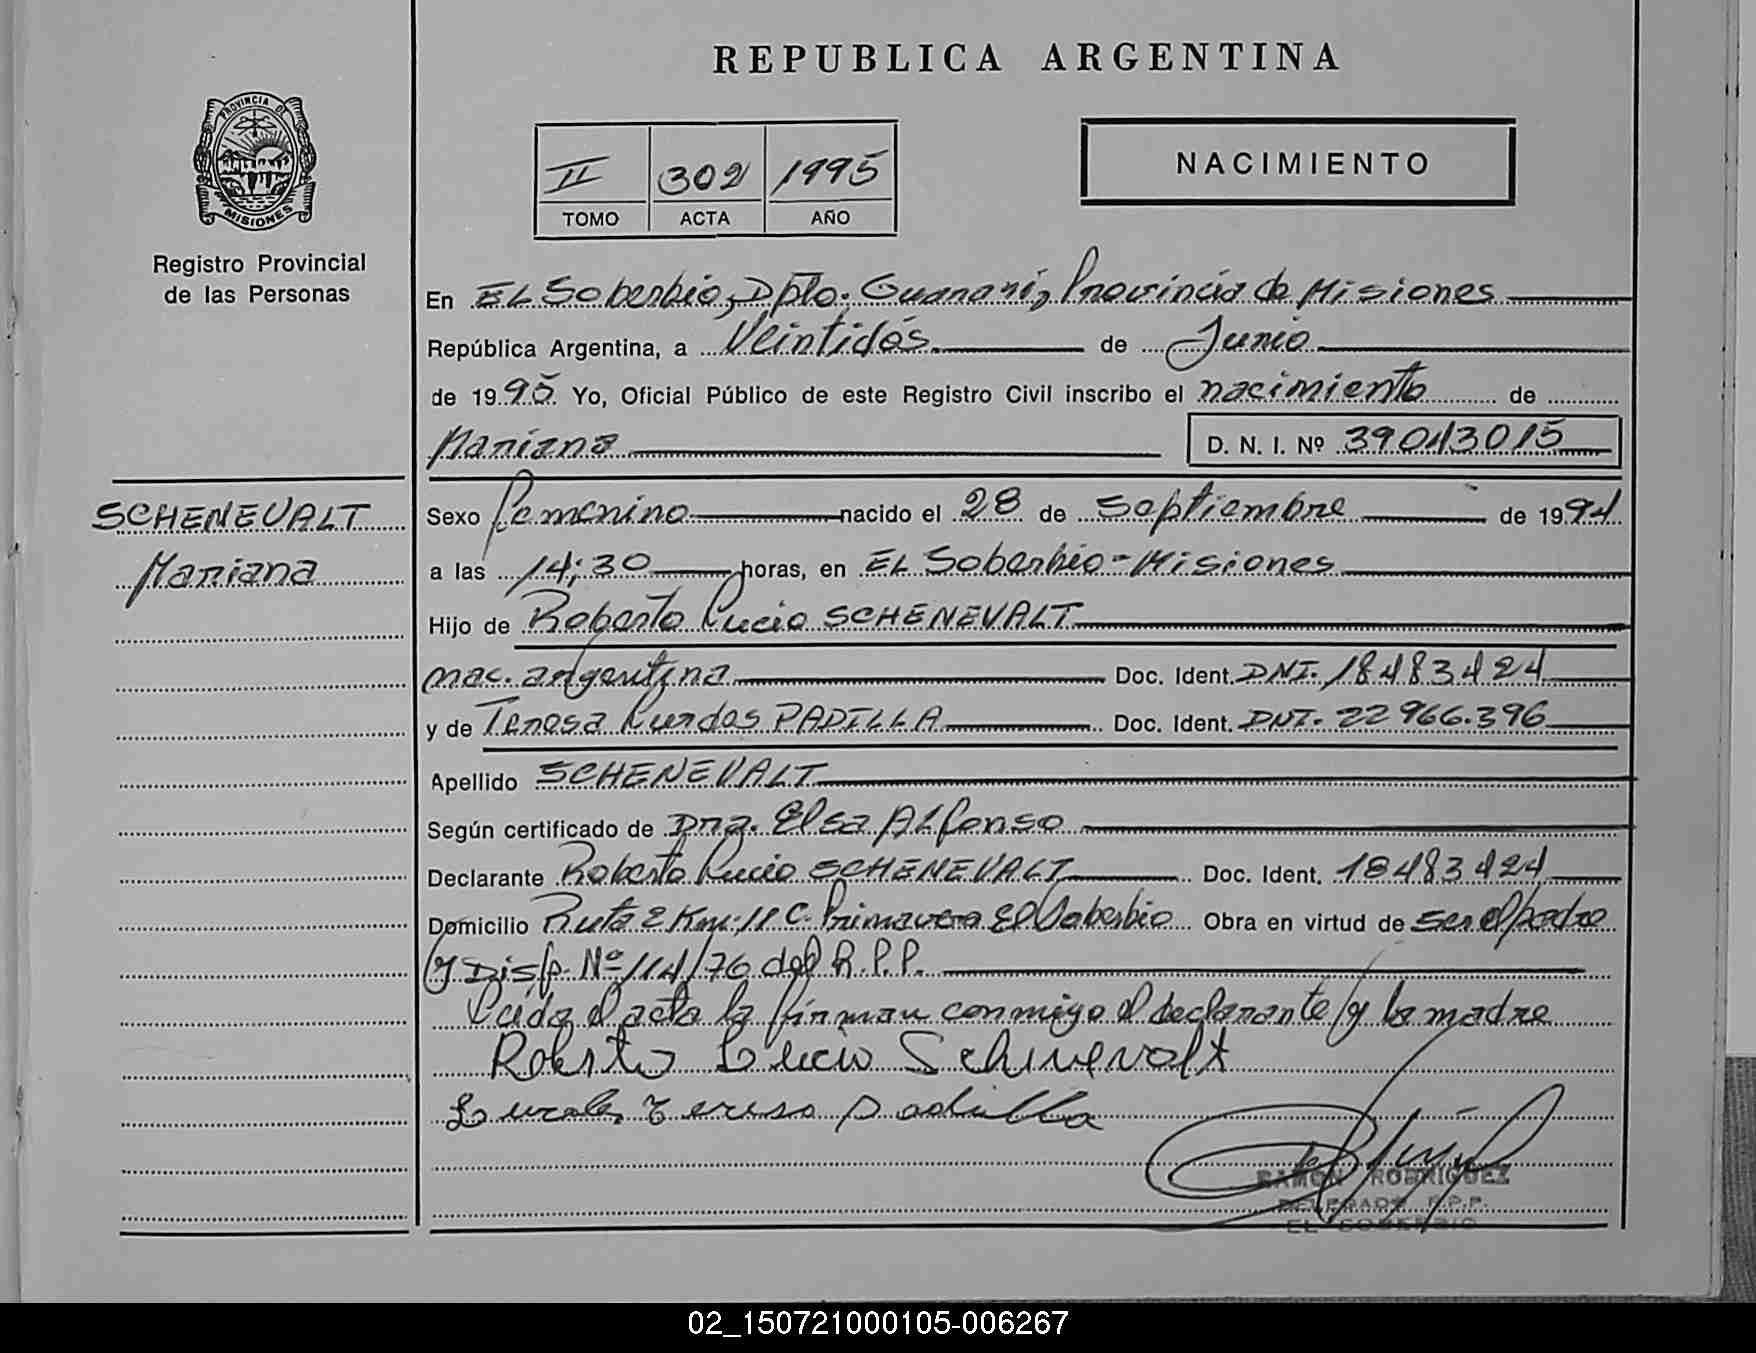 REPUBLICA ARGENTINA
PROVINCIA DE
MISIONES
Registro Provincial
de las Personas
II 302 1995
TOMO ACTA AÑO
NACIMIENTO
En EL Soberbio, Dpto. Guaraní, Provincia de Misiones
República Argentina, a Veintidós de Junio
de 1995 Yo, Oficial Público de este Registro Civil inscribo el nacimiento de
Mariana D. N. I. Nº 39043015
SCHENEVALT
Mariana
Sexo Femenino nacido el 28 de Septiembre de 1994
a las 14:30 horas, en EL Soberbio - Misiones
Hijo de Roberto Lucio SCHENEVALT
nac. argentina Doc. Ident. DNI. 18483424
y de Teresa Lurdes PADILLA Doc. Ident. DNI. 22966.396
Apellido SCHENEVALT
Según certificado de Dra. Elsa ALfonso
Declarante Roberto Lucio SCHENEVALT Doc. Ident. 18483424
Domicilio Ruta 2 Km: 11 C. Primavera El Soberbio Obra en virtud de ser el padre
y Disp. Nº 114/76 del R.P.P.
Leída el acta la firman conmigo el declarante y la madre
Roberto Lucio Schenevalt
Teresa Padilla
RAMON RODRIGUEZ
DELEGADO R.P.P.
EL SOBERBIO
02_150721000105-006267